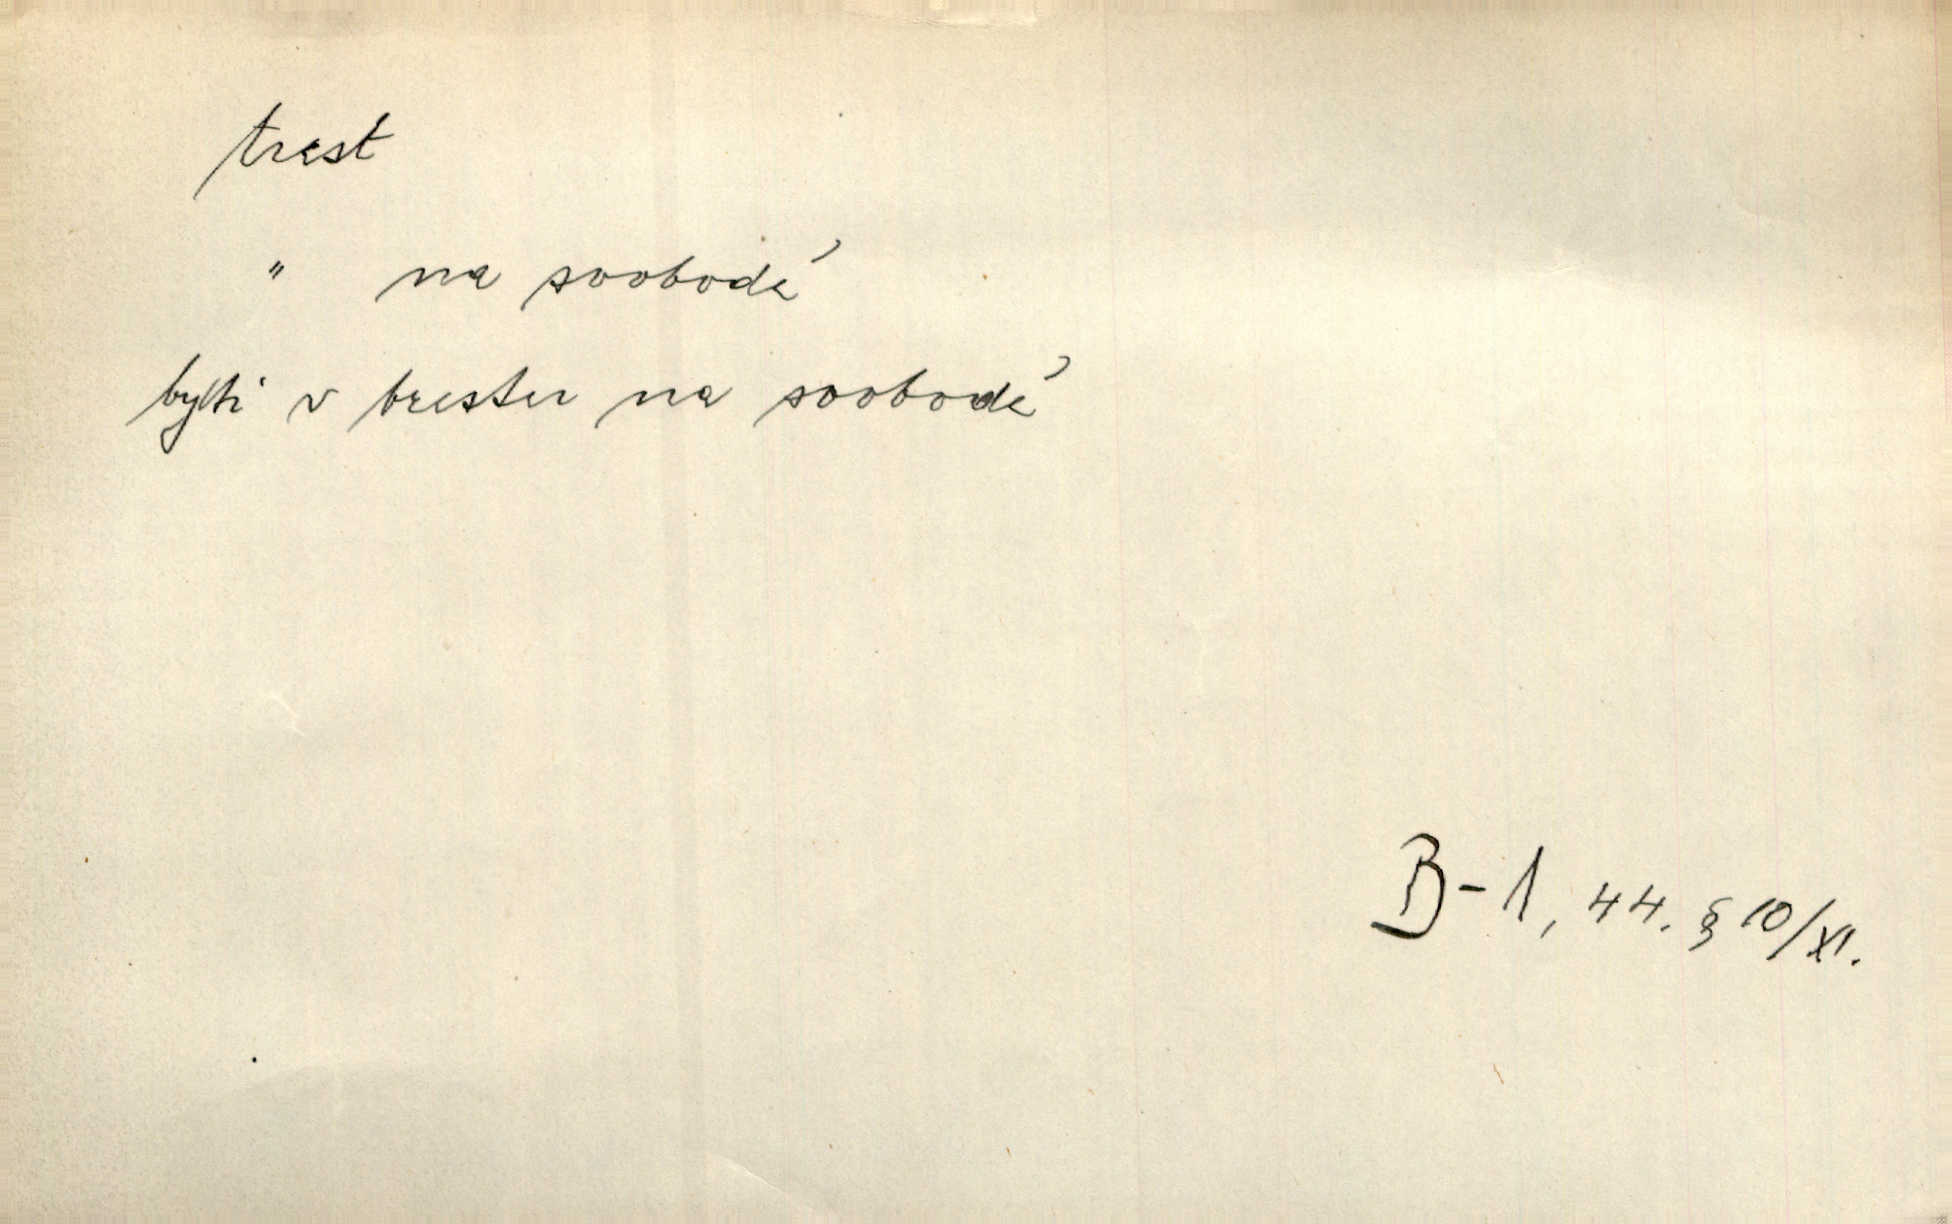 trest
" na svobodě
býti v trestu na svobodě
B-1, 44. § 10/XI.